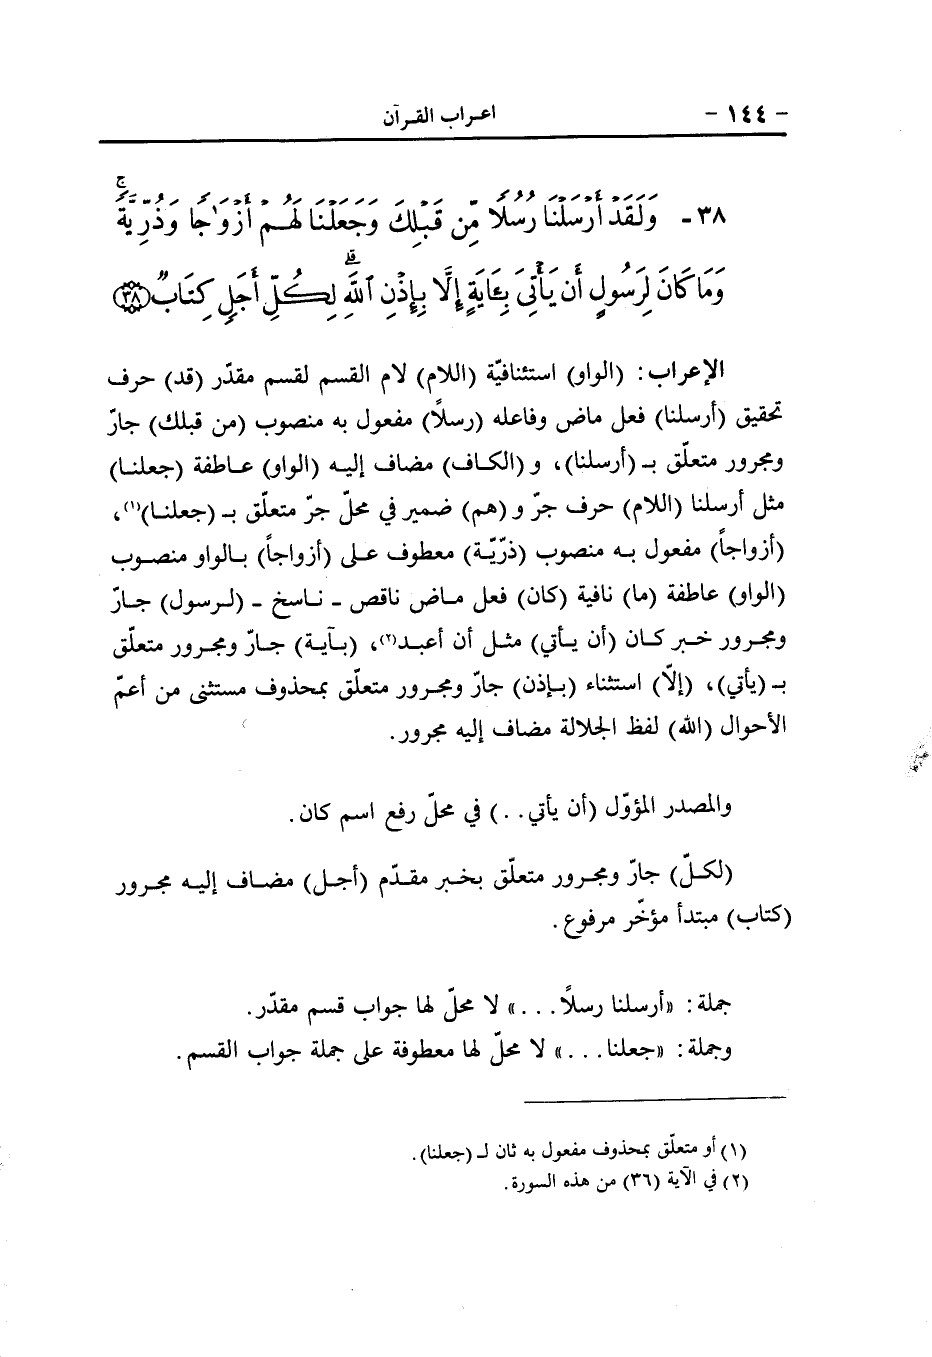 - ١٤٤ - اعراب القرآن
٣٨ - وَلَقَدْ أَرْسَلْنَا رُسُلًا مِّن قَبْلِكَ وَجَعَلْنَا لَهُمْ أَزْوَٰجًا وَذُرِّيَّةً ۚ
وَمَا كَانَ لِرَسُولٍ أَن يَأْتِىَ بِـَٔايَةٍ إِلَّا بِإِذْنِ ٱللَّهِ ۗ لِكُلِّ أَجَلٍ كِتَابٌ ﴿٣٨﴾
الإعراب: (الواو) استئنافيّة (اللام) لام القسم لقسم مقدّر (قد) حرف
تحقيق (أرسلنا) فعل ماض وفاعله (رسلاً) مفعول به منصوب (من قبلك) جارّ
ومجرور متعلّق بـ (أرسلنا)، و (الكاف) مضاف إليه (الواو) عاطفة (جعلنا)
مثل أرسلنا (اللام) حرف جرّ و (هم) ضمير في محلّ جرّ متعلّق بـ (جعلنا)(١)،
(أزواجاً) مفعول به منصوب (ذرّيّة) معطوف على (أزواجاً) بالواو منصوب
(الواو) عاطفة (ما) نافية (كان) فعل ماض ناقص - ناسخ - (لرسول) جارّ
ومجرور خبر كان (أن يأتي) مثل أن أعبد(٢)، (بآية) جارّ ومجرور متعلّق
بـ (يأتي)، (إلّا) استثناء (بإذن) جارّ ومجرور متعلّق بمحذوف مستثنى من أعمّ
الأحوال (الله) لفظ الجلالة مضاف إليه مجرور.
والمصدر المؤوّل (أن يأتي..) في محلّ رفع اسم كان.
(لكلّ) جارّ ومجرور متعلّق بخبر مقدّم (أجل) مضاف إليه مجرور
(كتاب) مبتدأ مؤخّر مرفوع.
جملة: «أرسلنا رسلاً...» لا محلّ لها جواب قسم مقدّر.
وجملة: «جعلنا...» لا محلّ لها معطوفة على جملة جواب القسم.
(١) أو متعلّق بمحذوف مفعول به ثان لـ (جعلنا).
(٢) في الآية (٣٦) من هذه السورة.